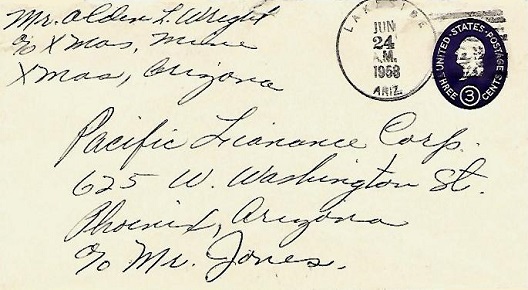 Mr. Alden L. Wright
c/o Xmas, Mine
Xmas, Arizona
JUN
24
A.M.
1958
ARIZ.
UNITED·STATES·POSTAGE
THREE 3 CENTS
Pacific Finance Corp.
625 W. Washington St.
Phoenix, Arizona
c/o Mr. Jones.